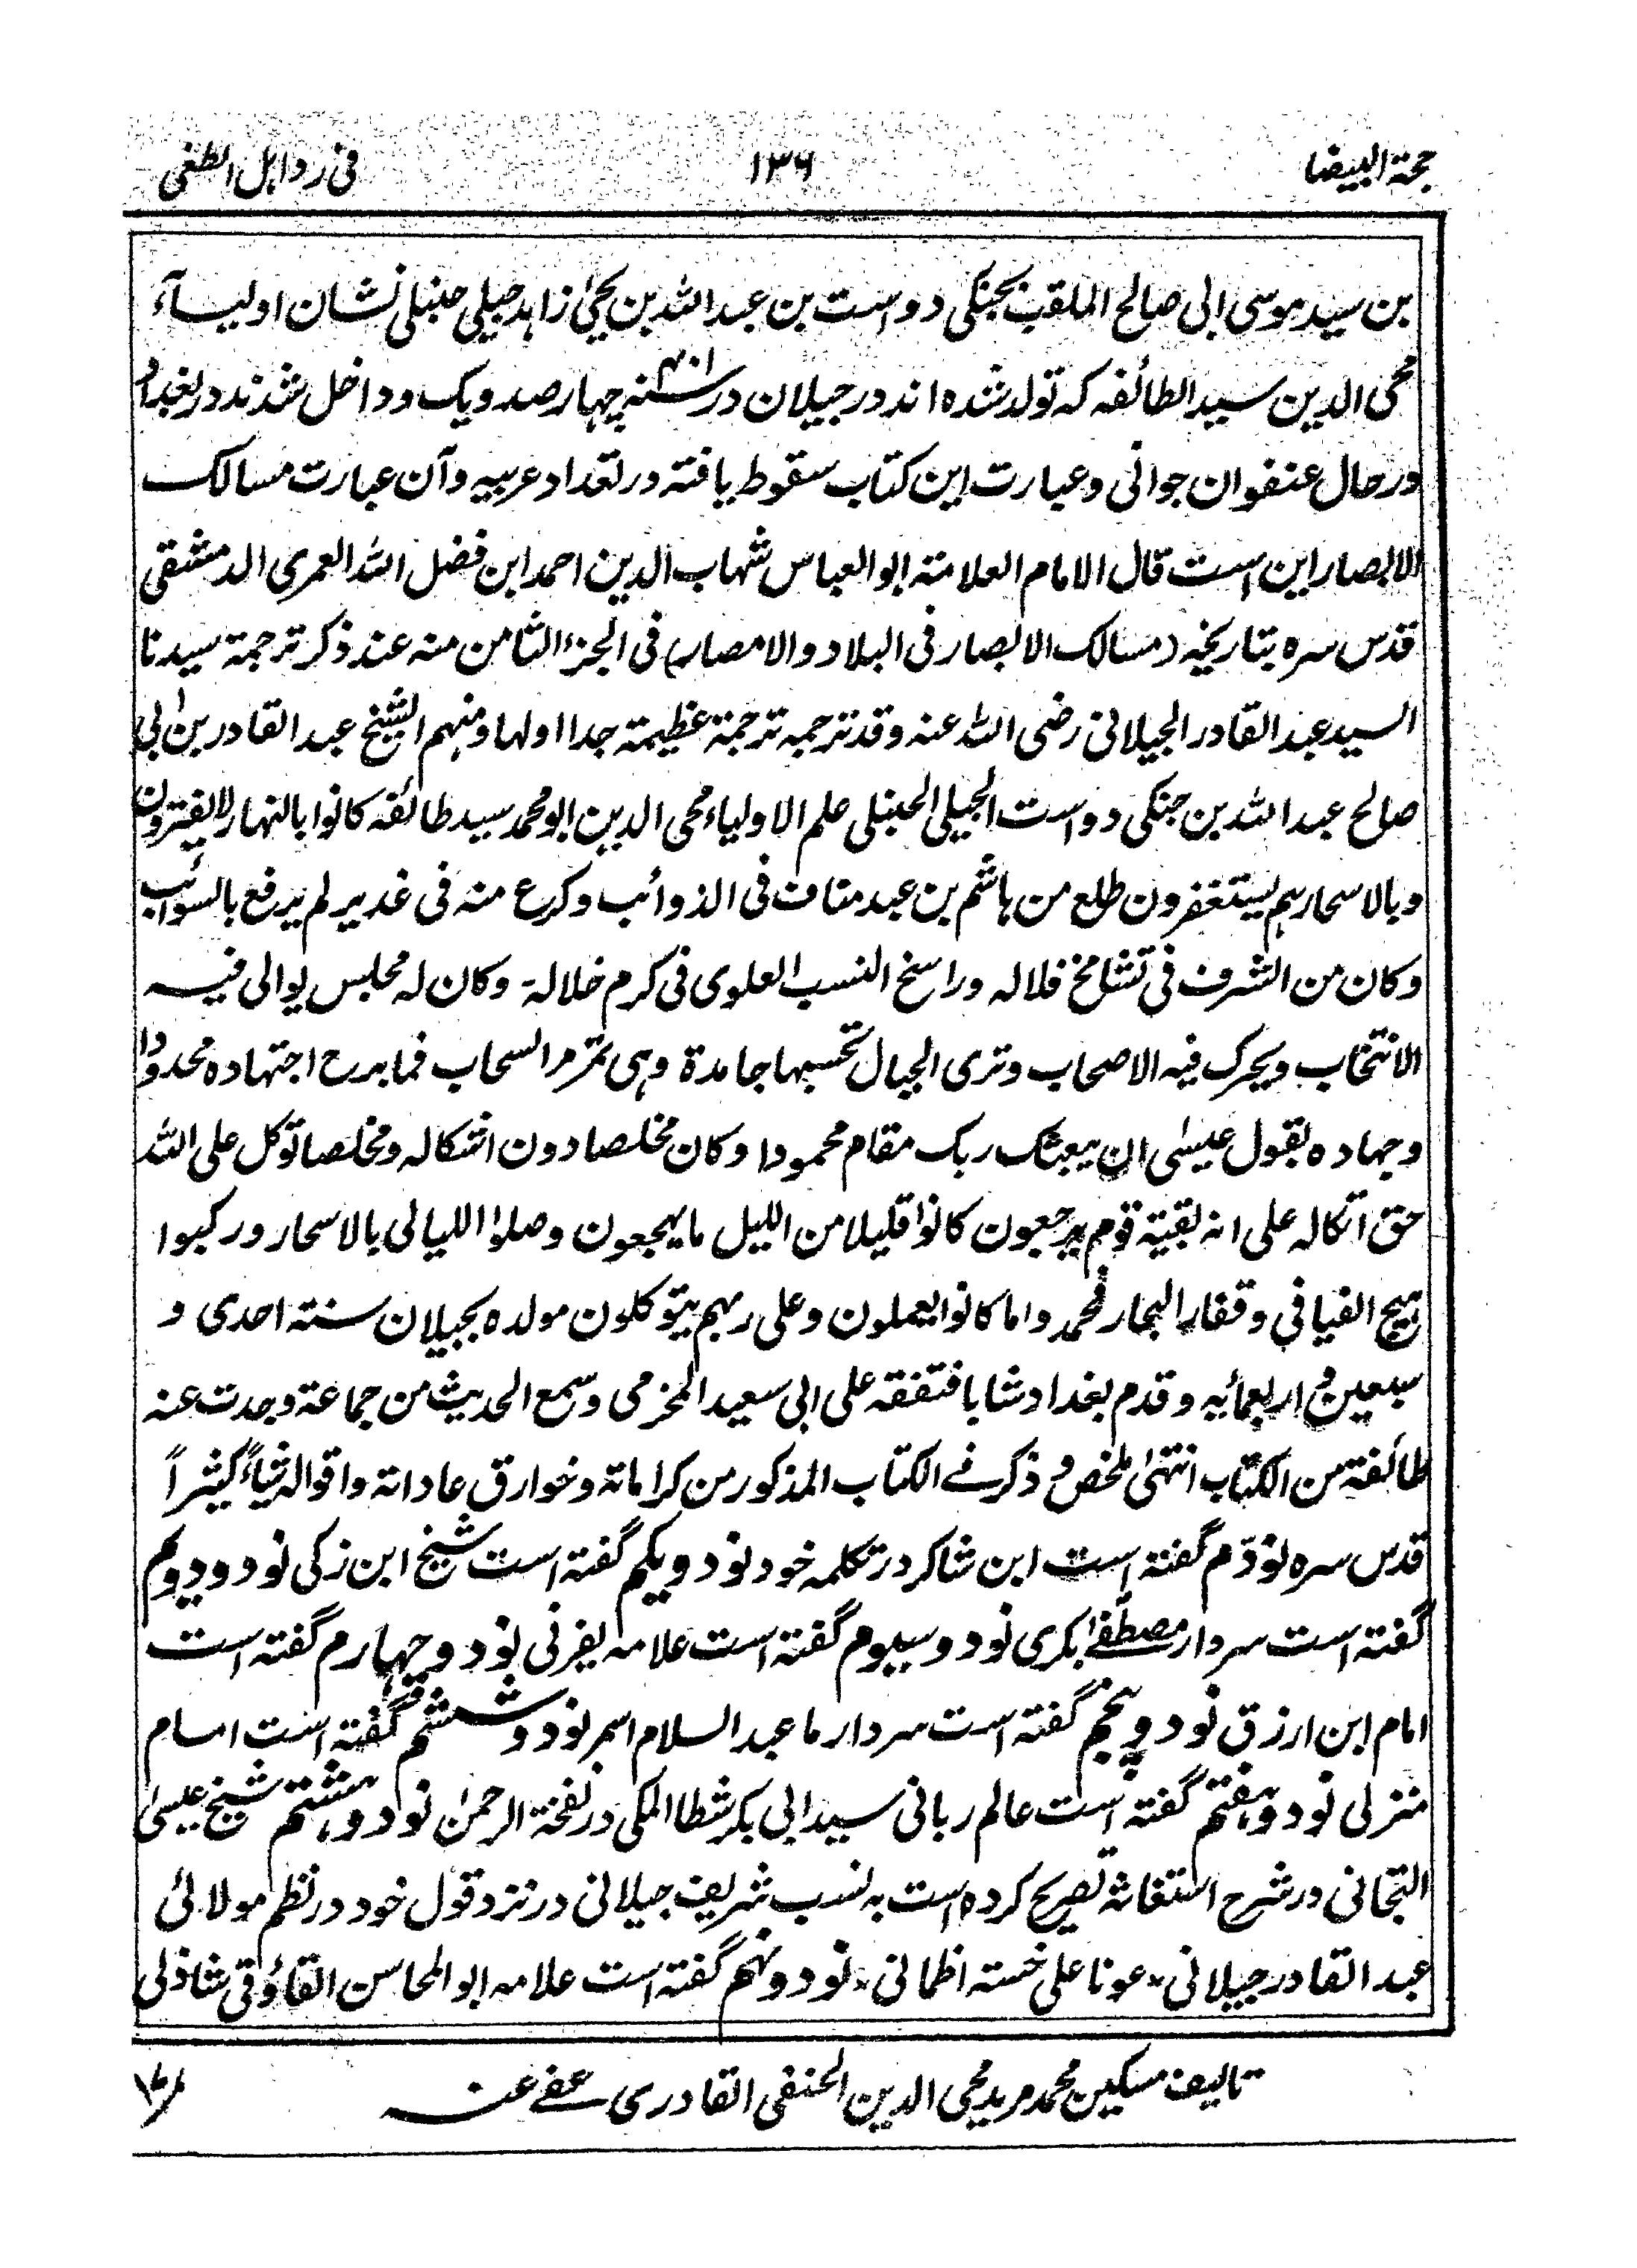 حجة البیضا ۱۳۶ فی رد اہل الطغی
بن سید موسی ابی صالح الملقب بجنگی دواست بن عبد اللہ بن یحیٰی زاہد جیلی حنبلی نشان اولیاء
محی الدین سید الطائفہ کہ تولد شدہ اند در جیلان در سنہ ۴۰۱ چہار صد و یک و داخل شدند در بغداد
در حال عنفوان جوانی و عبارت این کتاب سقوط یافتہ در تعداد عربیہ و آن عبارت مسالک
الابصار این است قال الامام العلامۃ ابو العباس شہاب الدین احمد ابن فضل اللہ العمری الدمشقی
قدس سرہ بتاریخہ (مسالک الابصار فی البلاد والامصار) فی الجزء الثامن منہ عند ذکر ترجمۃ سیدنا
السید عبد القادر الجیلانی رضی اللہ عنہ وقد ترجمہ ترجمۃ عظیمۃ جدا اولہا ومنہم الشیخ عبد القادر بن ابی
صالح عبد اللہ بن جنکی دواست الجیلی الحنبلی علم الاولیاء محی الدین ابو محمد سید طائفہ کانوا بالنہار لا یفترون
وبالاسحار ہم یستغفرون طلع من ہاشم بن عبد مناف فی الذوائب وکرع منہ فی غدیر لم یرفع بالسوائب
وکان من الشرف فی تشامخ فلالہ وراسخ النسب العلوی فی کرم خلالۃ وکان لہ مجلس یوالی فیہ
الانتخاب ویحرک فیہ الاصحاب وتری الجبال تحسبہا جامدۃ وہی تمر مر السحاب فما برح اجتہادہ محدودا
وجہادہ بقول عیسٰی ان یبعثک ربک مقام محمودا وکان مخلصا دون اشکالہ ومخلصا توکل علی اللہ
حق اتکالہ علی انہ بقیۃ قوم یرجعون کانوا قلیلا من اللیل ما یہجعون وصلوا اللیالی بالاسحار ورکبوا
ہیج الفیافی وقفار البحار فحمدوا ما کانوا یعملون وعلی ربہم یتوکلون مولدہ بجیلان سنتہ احدی و
سبعین و اربعمائیہ وقدم بغداد شابا فتفقہ علی ابی سعید المخزمی وسمع الحدیث من جماعۃ وحدت عنہ
طائفۃ من الکتاب انتہٰی ملخص و ذکر فے الکتاب المذکور من کراماتہ وخوارق عاداتہ واقوالہ شیاءً کثیراً
قدس سرہ نودم گفتہ است ابن شاکر در تکلمہ خود نود و یکم گفتہ است شیخ ابن زکی نود و دویم
گفتہ است سردار مصطفےٰ بکری نود و سیوم گفتہ است علامہ یفرنی نود و چہارم گفتہ است
امام ابن ارزق نود و پنجم گفتہ است سردار ما عبد السلام اسمر نود و ششم گفتہ است امام
منزلی نود و ہفتم گفتہ است عالم ربانی سید ابی بکر شطا المکی در نفحۃ الرحمٰن نود و ہشتم شیخ عیسیٰ
التجانی در شرح استغاثہ تصریح کردہ است بہ نسب شریف جیلانی در نزد قول خود در نظم مولائی
عبد القادر جیلانی * عونا علی خستہ اظمانی * نود و نہم گفتہ است علامہ ابو المحاسن القاؤقی شاذلی
تالیف مسکین محمد مرید محی الدین الحنفی القادری عفے عنہ